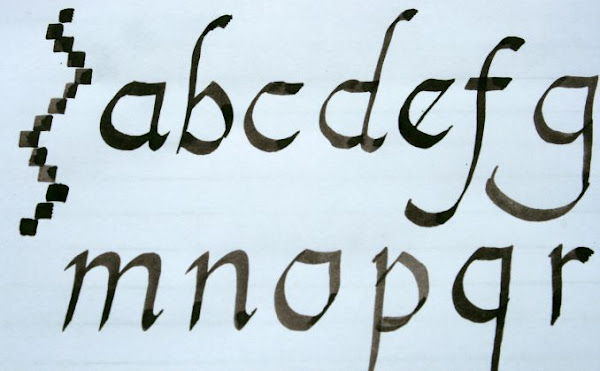 abcdefg
mnopqr